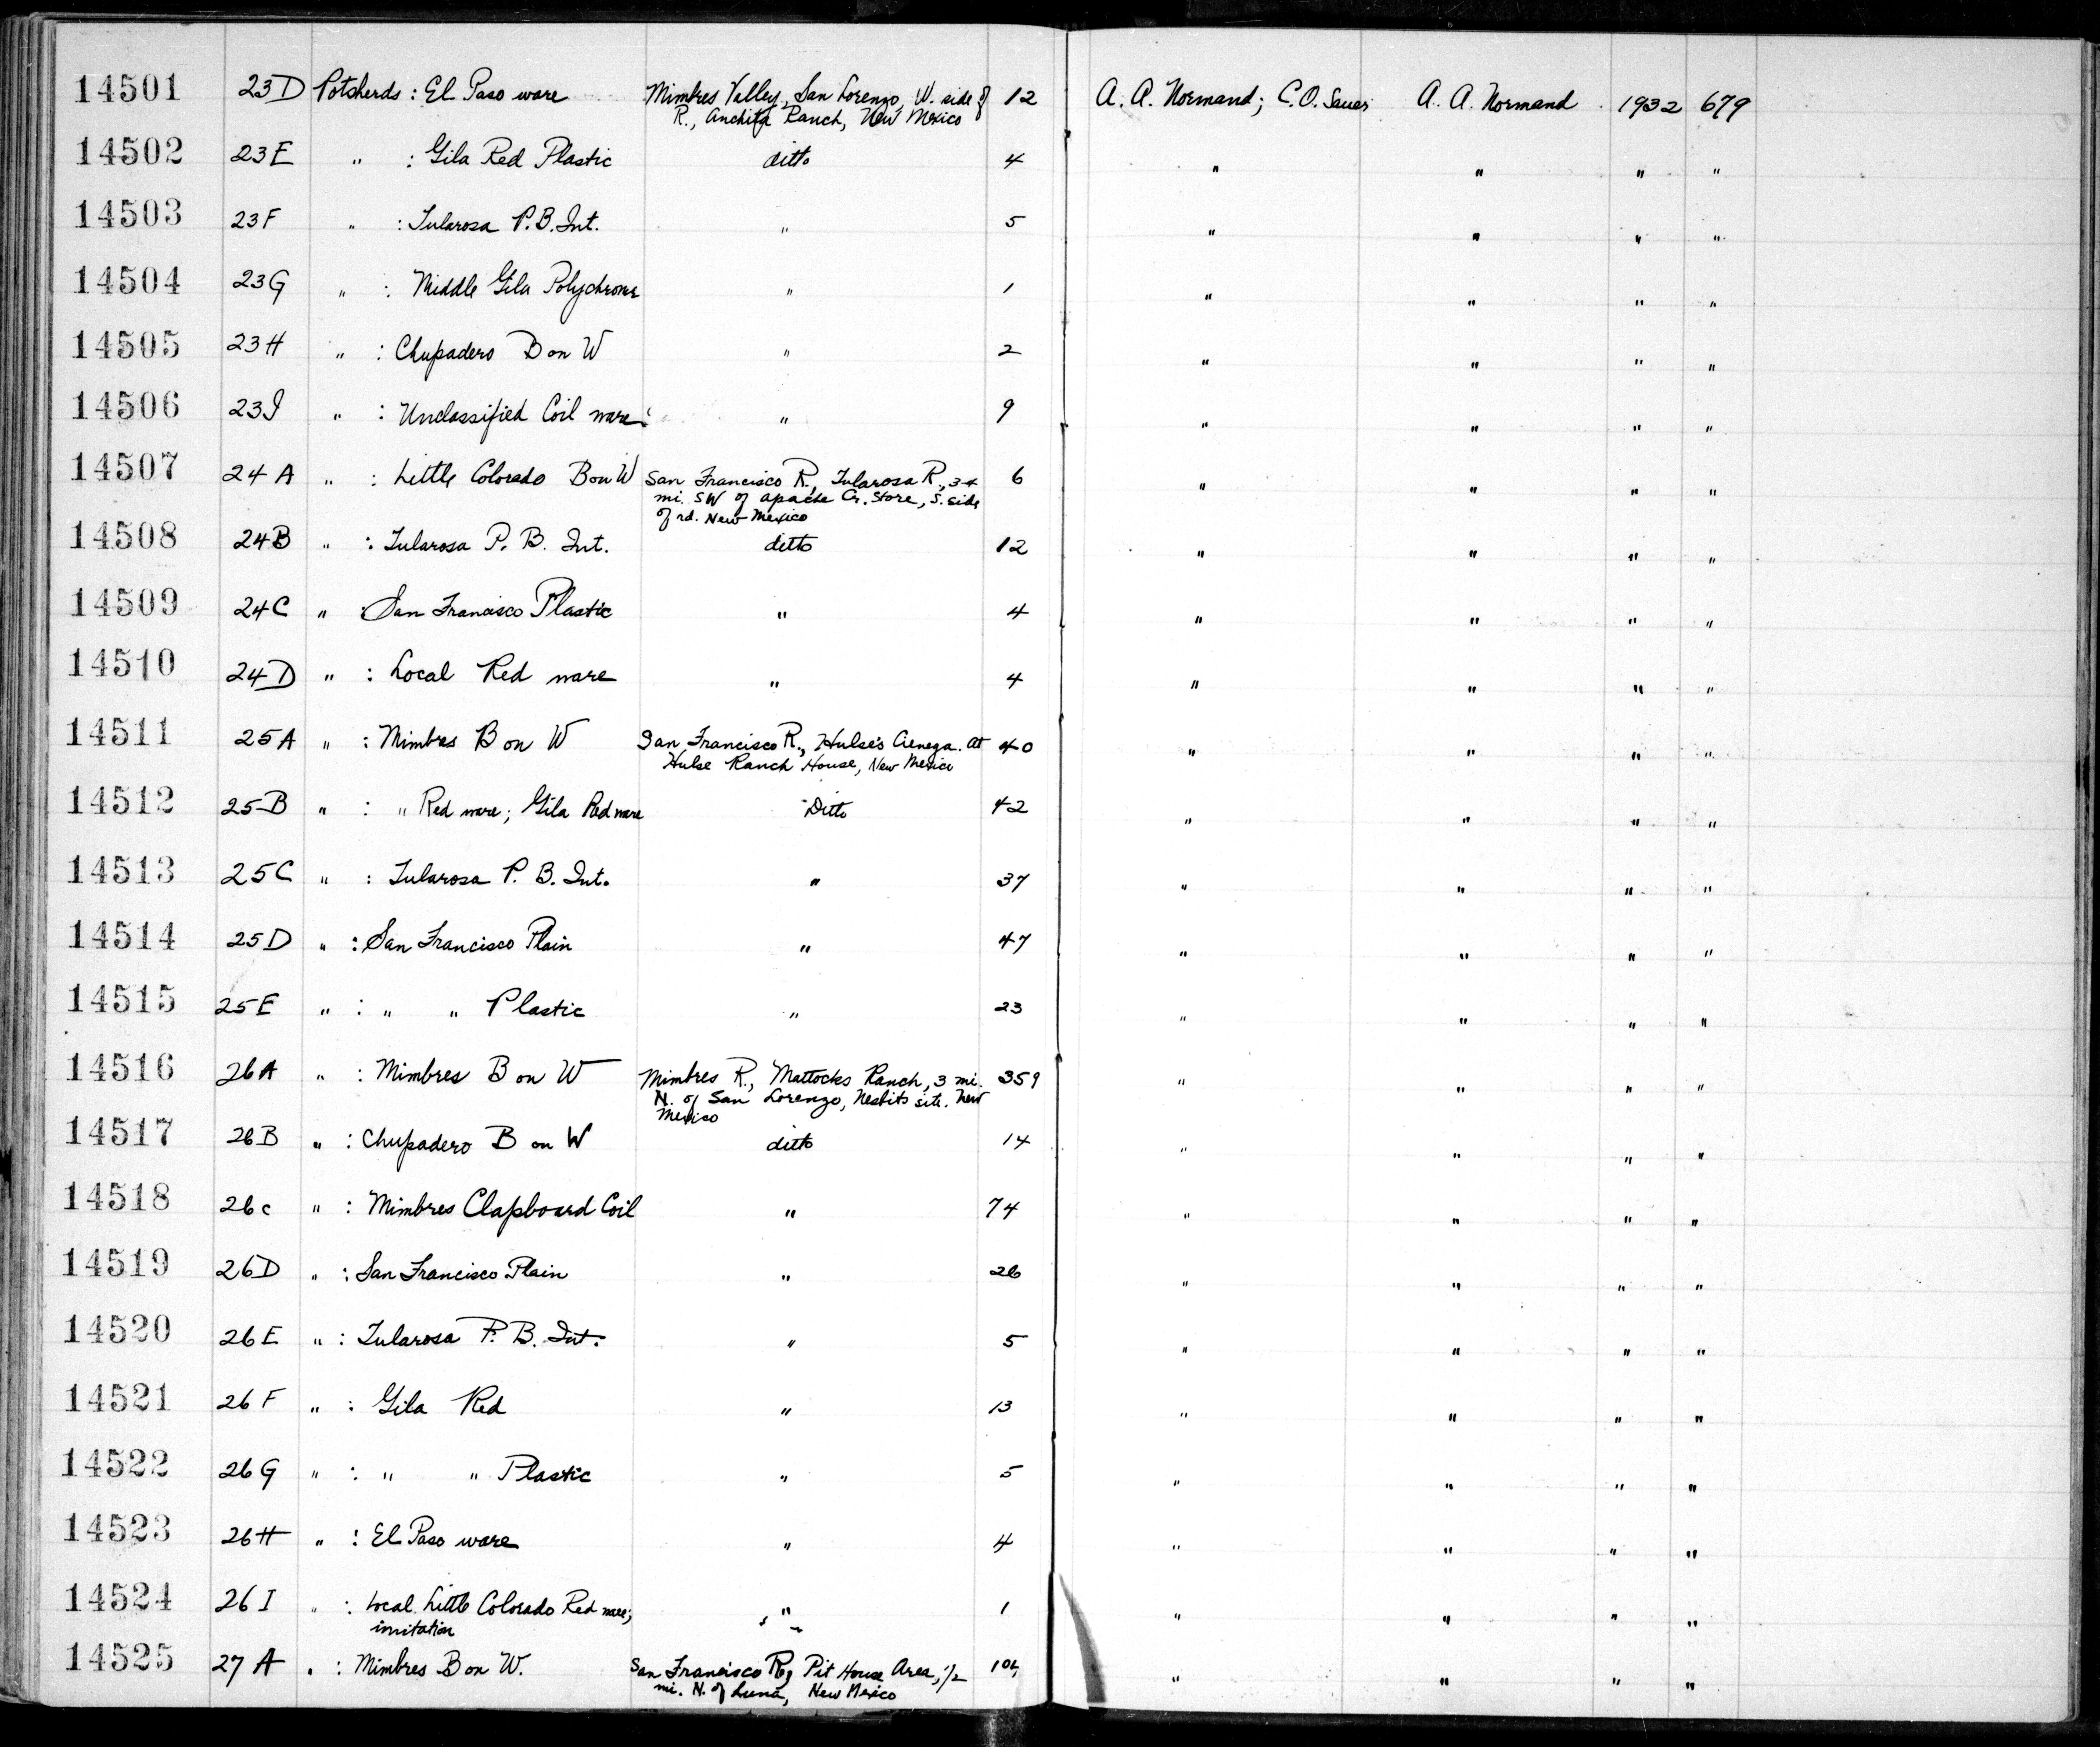 14501 23D Potsherds : El Paso ware Mimbres Valley, San Lorenzo, W. side of 12 A. A. Normand; C.O. Sauer A. A. Normand 1932 679
R., Ranch, New Mexico
14502 23E " : Gila Red Plastic ditto 4 " " " "
14503 23F " : Tularosa P.B. Int. " 5 " " " "
14504 23G " : Middle Gila Polychrome " 1 " " " "
14505 23H " : Chupadero B on W " 2 " " " "
14506 23I " : Unclassified Coil ware " 9 " " " "
14507 24A " : Little Colorado B on W San Francisco R., Tularosa R., 3+ 6 " " " "
mi. SW of Apache Cr. Store, S. side
of rd. New Mexico
14508 24B " : Tularosa P. B. Int. ditto 12 " " " "
14509 24C " : San Francisco Plastic " 4 " " " "
14510 24D " : Local Red ware " 4 " " " "
14511 25A " : Mimbres B on W San Francisco R., Hulse's Cienega. At 40 " " " "
Hulse Ranch House, New Mexico
14512 25B " : " Red ware; Gila Red ware Ditto 42 " " " "
14513 25C " : Tularosa P. B. Int. " 37 " " " "
14514 25D " : San Francisco Plain " 47 " " " "
14515 25E " : " " Plastic " 23 " " " "
14516 26A " : Mimbres B on W Mimbres R., Mattocks Ranch, 3 mi. 359 " " " "
N. of San Lorenzo, Nesbits site. New
Mexico
14517 26B " : Chupadero B on W ditto 14 " " " "
14518 26c " : Mimbres Clapboard Coil " 74 " " " "
14519 26D " : San Francisco Plain " 26 " " " "
14520 26E " : Tularosa P. B. Int. " 5 " " " "
14521 26F " : Gila Red " 13 " " " "
14522 26G " : " " Plastic " 5 " " " "
14523 26H " : El Paso ware " 4 " " " "
14524 26I " : Local Little Colorado Red ware; " 1 " " " "
imitation
14525 27A " : Mimbres B on W. San Francisco R., Pit House Area, 1/2 " " " "
mi. N. of Luna, New Mexico